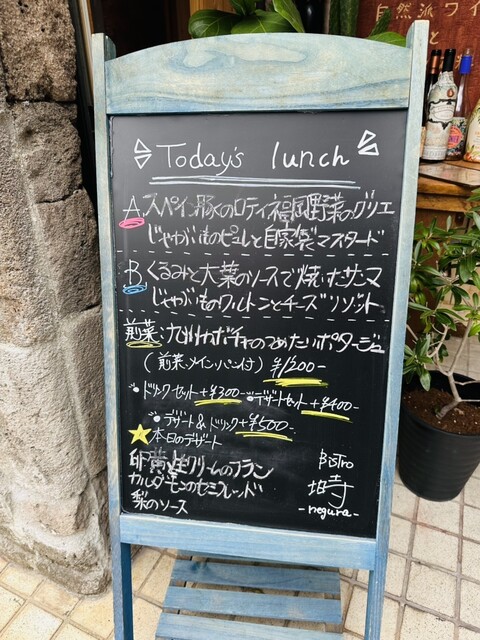 自然派ワイ
と
Today's lunch
A. スペイン豚のロティ 福岡野菜のグリエ
じゃがいものピュレと自家製マスタード
B くるみと大葉のソースで焼いたサンマ
じゃがいものクルトンとチーズリゾット
前菜:九州カボチャのつめたいポタージュ
(前菜、メイン、パン付) ¥1200-
・ドリンクセット+¥300- ・デザートセット+¥400-
・デザート&ドリンク+¥500-
本日のデザート
卵黄と生クリームのフラン
カルダモンのセミフレッド
梨のソース
Bistro
塒
-negura-